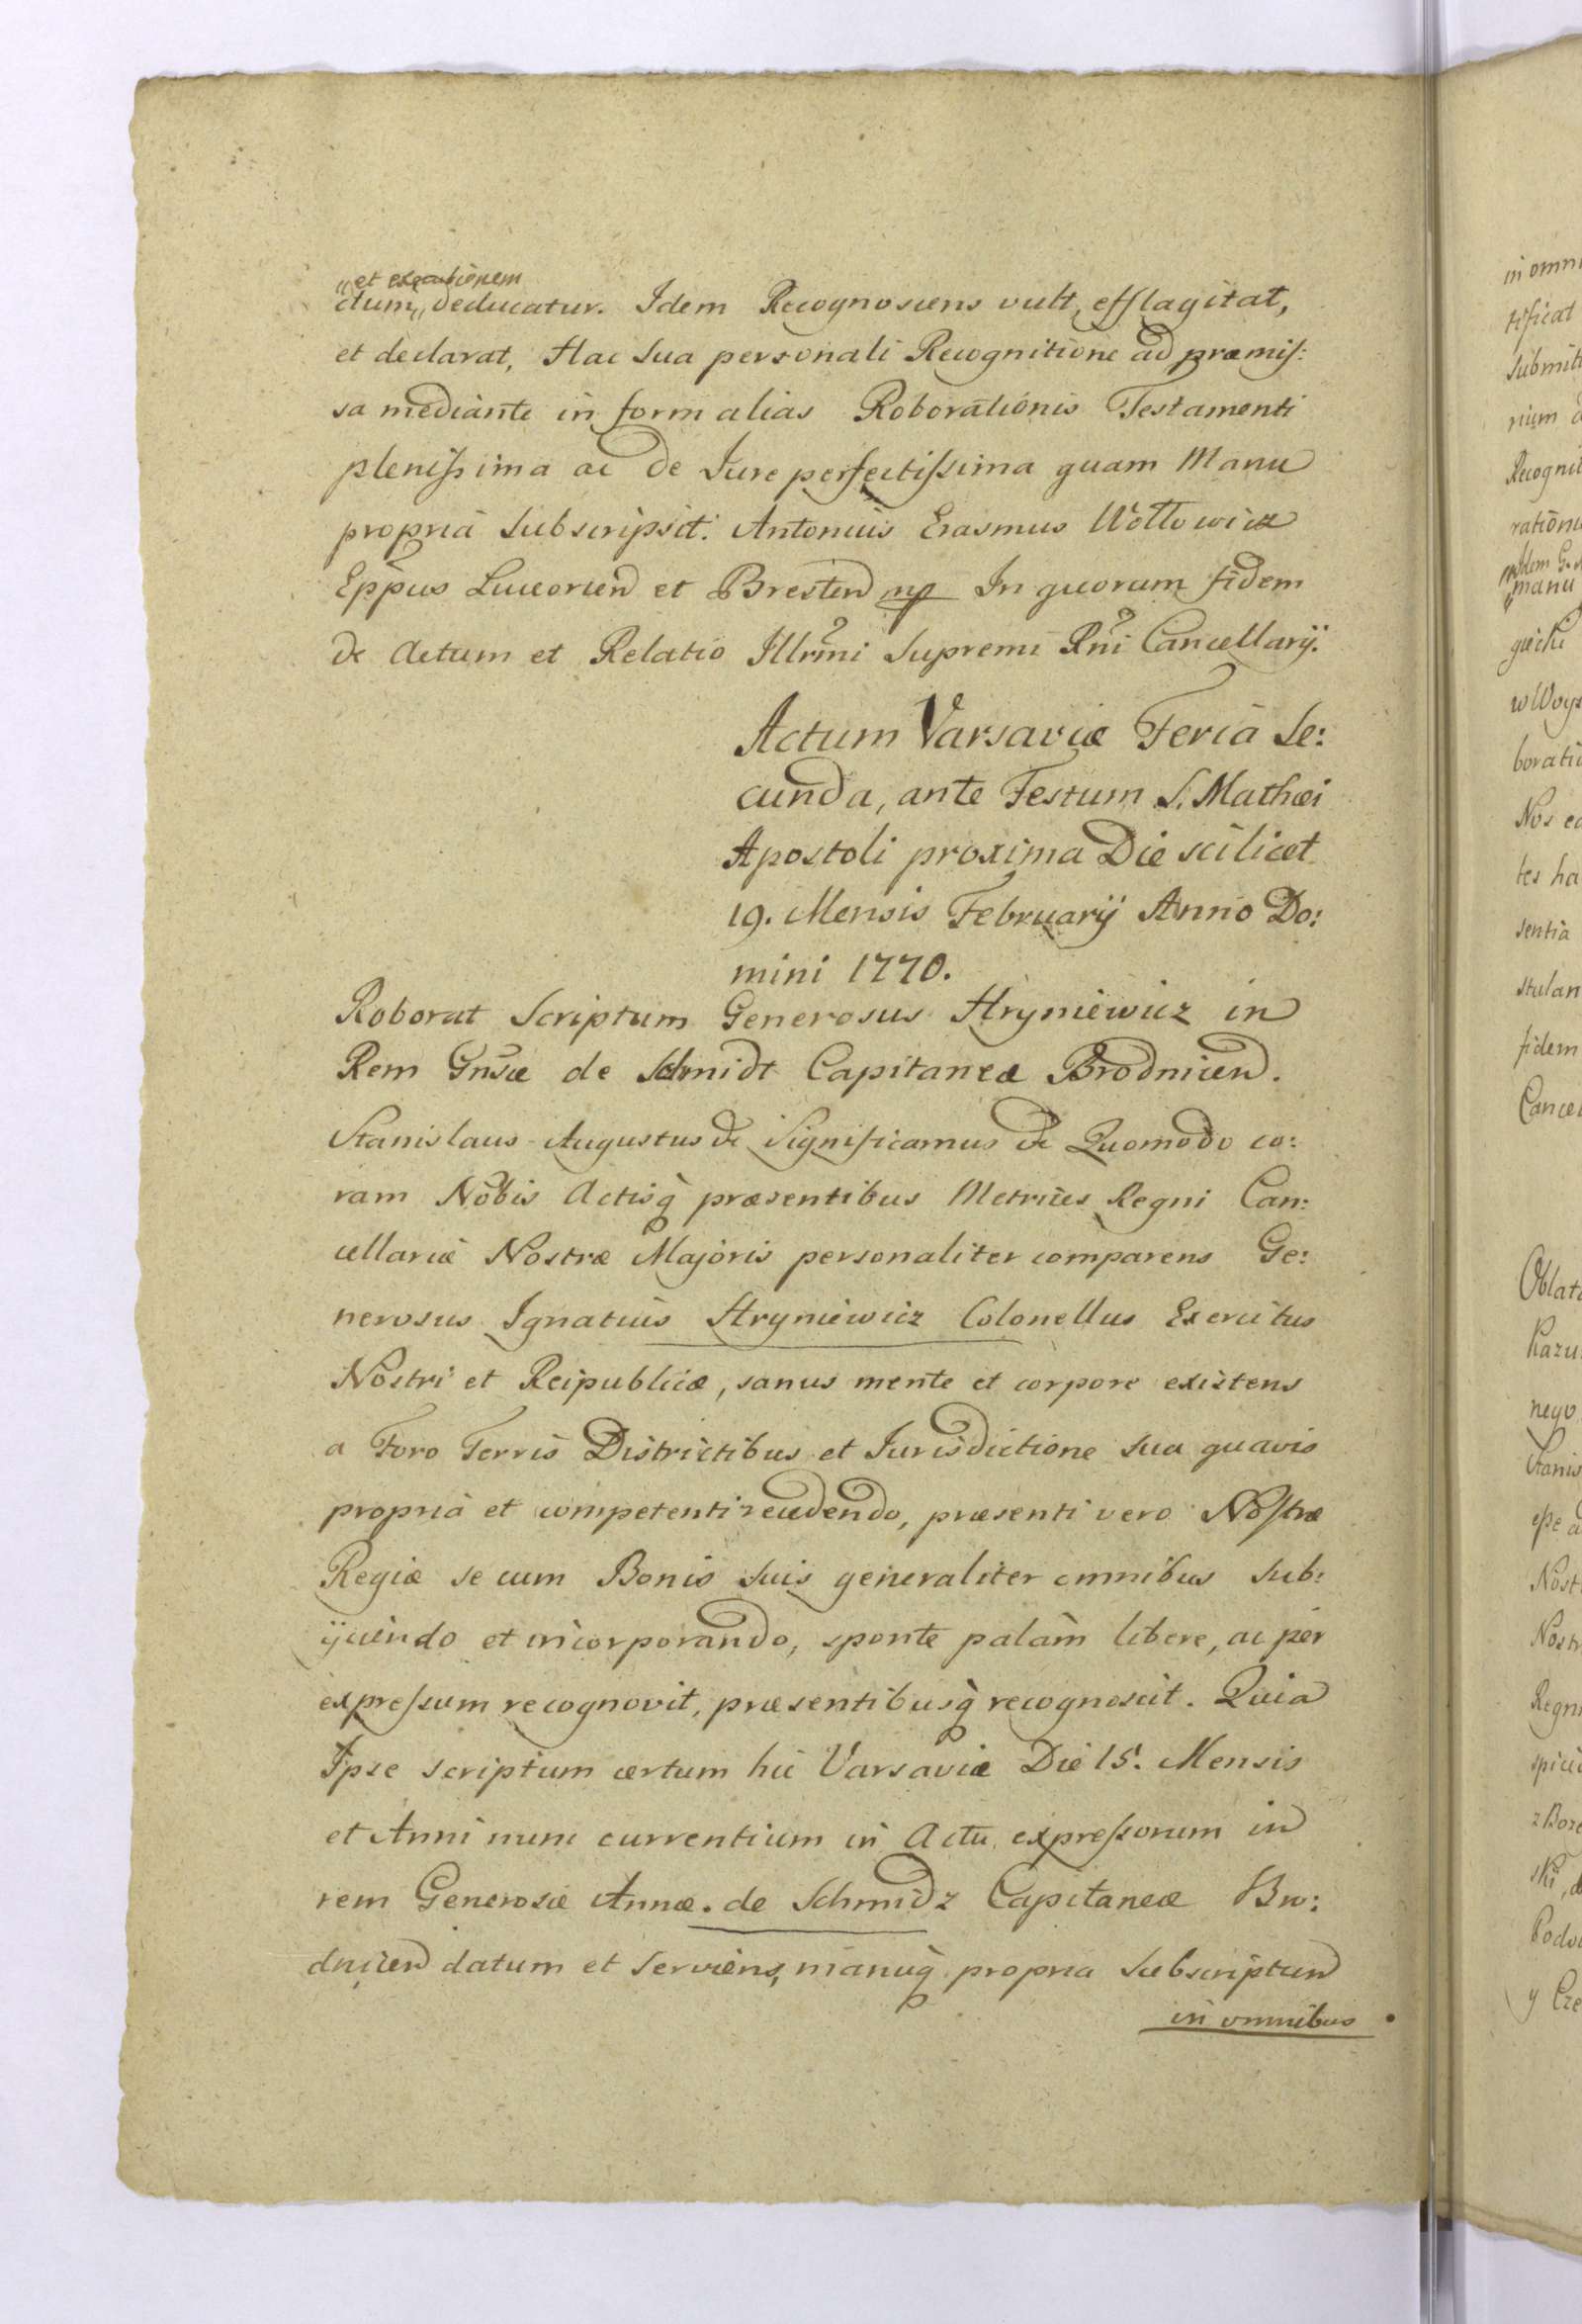 „et executionem
ctum„ deducatur. Idem Recognoscens vult, efflagitat,
et declarat, Hac sua personali Recognitione ad præmiſ:
sa mediante in form alias Roborationis Testamenti
pleniſsima ac de Jure perfectiſsima quam Manu
propria subscripsit. Antonius Erasmus Wołłowicz
Eppus Luceorien et Bresten mp In quorum fidem
&c Actum et Relatio Illrmi Supremi Rni Cancellarij.
Actum Varsaviæ Feria Se:
cunda, ante Festum S. Mathæi
Apostoli proxima Die scilicet
19. Mensis Februarij Anno Do:
mini 1770.
Roborat Scriptum Generosus Hryniewicz in
Rem Gnsæ de Schmidt Capitaneæ Brodnicen.
Stanislaus Augustus &c Significamus &c Quomodo co:
ram Nobis Actisq præsentibus Metrices Regni Can:
cellariæ Nostræ Majoris personaliter comparens Ge:
nerosus Ignatius Hryniewicz Colonellus Exercitus
Nostri et Reipublicæ, sanus mente et corpore existens
a Foro Terris Districtibus et Jurisdictione sua quavis
propria et competenti recedendo, præsenti vero Noſtræ
Regiæ se cum Bonis suis generaliter omnibus sub:
ijciendo et incorporando, sponte palam libere, ac per
expreſsum recognovit, præsentibusq recognoscit. Quia
Ipse scriptum certum hic Varsaviæ Die 15. Mensis
et Anni nunc currentium in Actu expreſsorum in
rem Generosæ Annæ. de Schmidz Capitaneæ Bro:
dnicen datum et serviens, manuq propria subscriptum
in omnibus